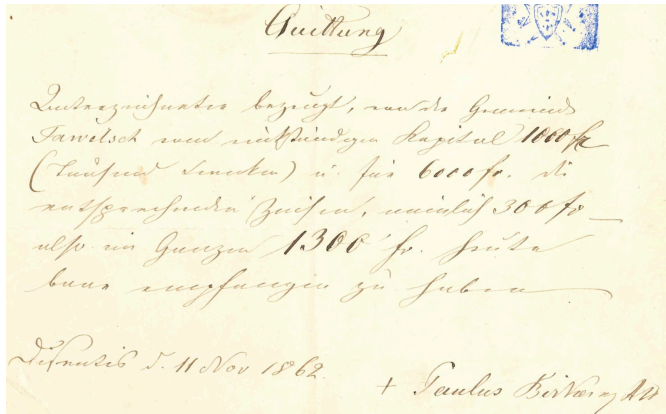 Quittung
Unterzeichneter bezeugt, von der Gemeinde
Tawetsch vom rückständigen Kapital 1000 fr
(Tausend Franken) u. für 6000 fr. die
entsprechenden Zinsen, nämlich 300 fr
also im Ganzen 1300 fr. heute
baar empfangen zu haben
Disentis d. 11 Nov 1862.
+ Paulus